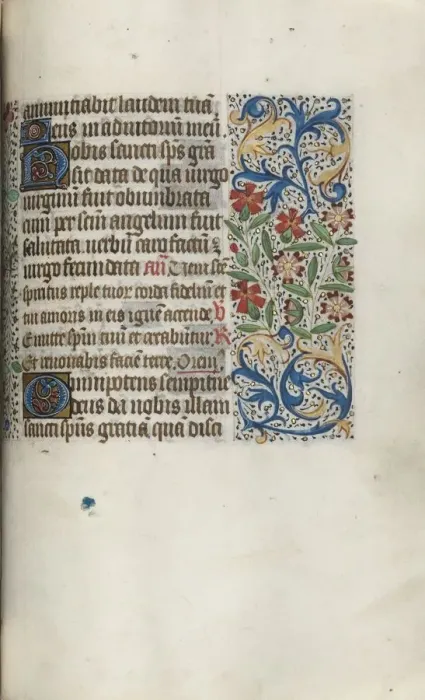 annunciabit laudem tuā
Deus in adiutoriū meū.
Nobis sancti sp̄s grā
sit data de qua uirgo
uirginū fuit obumbrata
cum per sctm̄ angelum fuit
salutata uerbū caro factū ē
uirgo fecundata añ Veni sc̄e
spiritus reple tuor corda fideliū et
tui amoris in eis ignē accende. V
Emitte spm̄ tuū et creabūtur. R
Et renouabis faciē terre. Orem⁹
Omnipotens sempiterne
deus da nobis illam
sancti sp̄us gratiā, quā disci